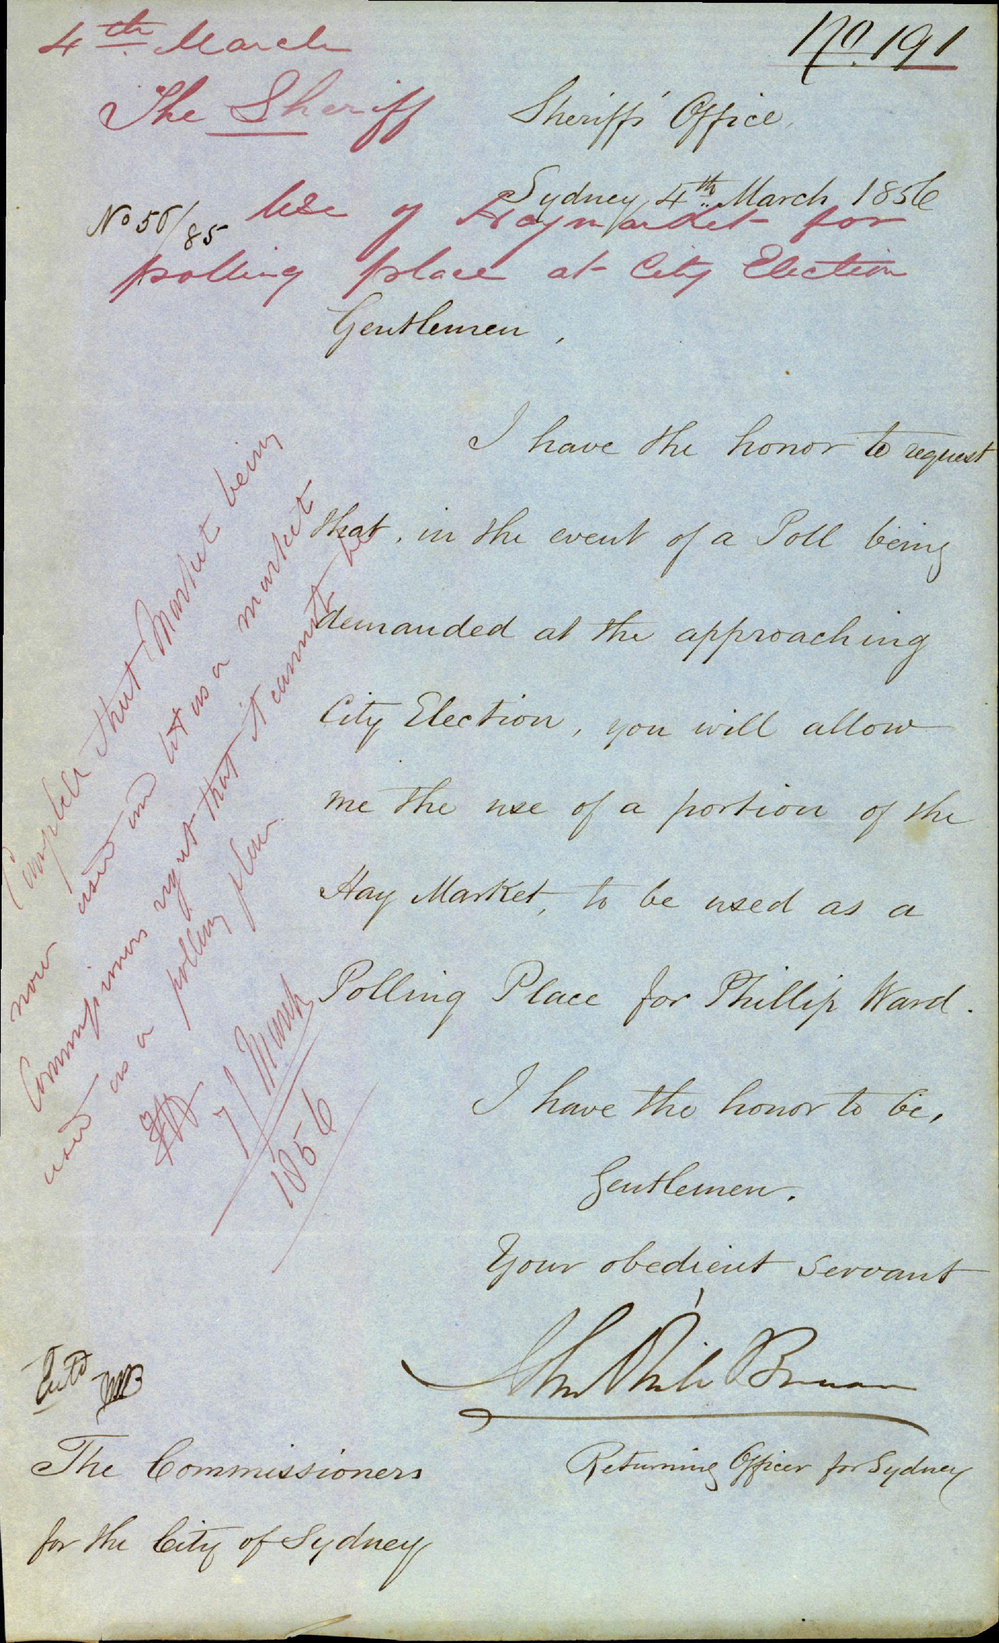 4th March
No 191
The Sheriff
Sheriff's Office,
Sydney 4th March 1856
No 56/85
Use of Haymarket for
polling place at City Election
Gentlemen,
I have the honor to request
that, in the event of a Poll being
demanded at the approaching
City Election, you will allow
me the use of a portion of the
Hay Market, to be used as a
Polling Place for Phillip Ward.
I have the honor to be,
Gentlemen.
Your obedient servant
Returning Officer for Sydney
Entd
The Commissioners
for the City of Sydney
that Market being
now used as a market
Commissioners regret that it cannot be
used as a polling place.
7/ March
1856